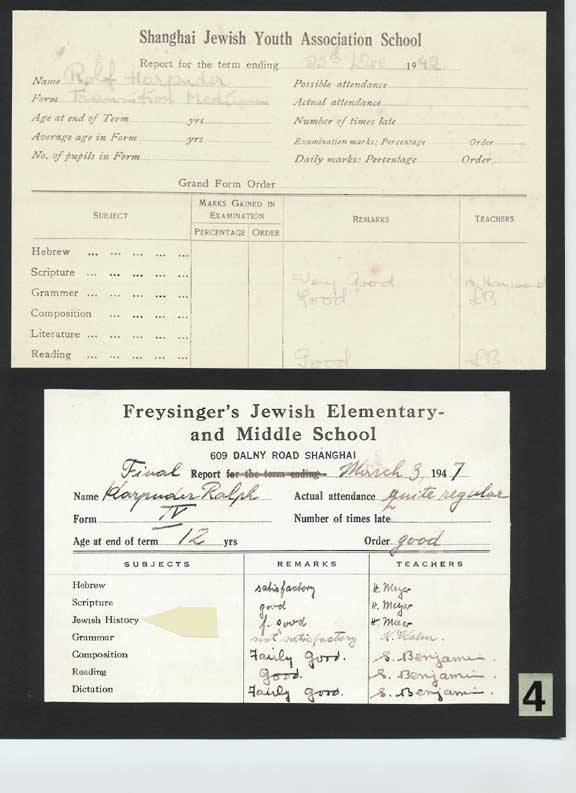 Shanghai Jewish Youth Association School
Report for the term ending 23th Dec 1942
Name Rolf Harpuder Possible attendance
Form Transition Medium Actual attendance
Age at end of Term yrs Number of times late
Average age in Form yrs Examination marks; Percentage Order
No. of pupils in Form Daily marks: Percentage Order
Grand Form Order
SUBJECT MARKS GAINED IN EXAMINATION REMARKS TEACHERS
PERCENTAGE ORDER
Hebrew ... ... ... ... ...
Scripture ... ... ... ... Very Good.
Grammer ... ... ... ... Good SB
Composition ... ... ... ...
Literature ... ... ... ...
Reading ... ... ... ... Good SB
Freysinger's Jewish Elementary-
and Middle School
609 DALNY ROAD SHANGHAI
Final Report for the term ending March 3, 1947
Name Harpuder Ralph Actual attendance quite regular
Form IV Number of times late
Age at end of term 12 yrs Order good
SUBJECTS REMARKS TEACHERS
Hebrew satisfactory H. Meyer
Scripture good H. Meyer
Jewish History f. good H. Meier
Grammar not satisfactory K. Kahn.
Composition Fairly Good. S. Benjamin.
Reading Good. S. Benjamin.
Dictation Fairly Good. S. Benjamin.
4